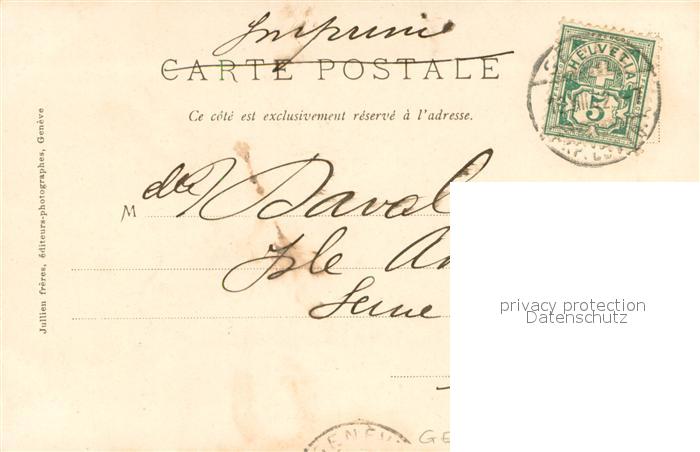 Imprimé
CARTE POSTALE
Ce côté est exclusivement réservé à l'adresse.
HELVETIA
5
M
Isle
Seine
Jullien frères, éditeurs-photographes, Genève
privacy protection
Datenschutz
GENÈV
GE